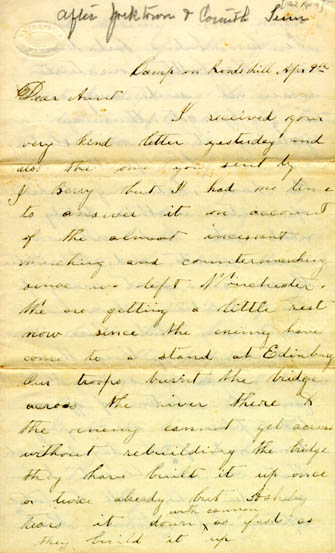 after Yorktown & Corinth Tenn
Camp on Rudes hill Apr 9th
Dear Aunt
I received your
very kind letter yesterday and
also the one you sent by
J Berry but I had no time
to answer it on account
of the almost incessant
marching and countermarching
since we left Winchester.
We are getting a little rest
now since the enemy have
come to a stand at Edinburg
Our troops burnt the bridge
across the river there &
the enemy cannot get across
without rebuilding the bridge
they have built it up once
or twice already but Ashby
tears it down with cannon as fast as
they build it up